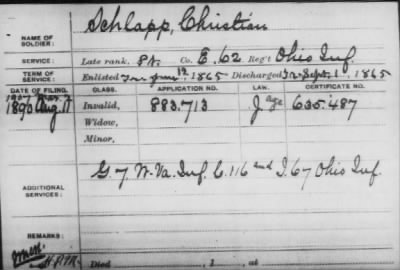 NAME OF SOLDIER: Schlapp, Christian
SERVICE: Late rank, Pt. Co. E. 62 Reg't Ohio Inf.
TERM OF SERVICE: Enlisted June 1865 Discharged Sept. 1, 1865
DATE OF FILING. CLASS. APPLICATION NO. LAW. CERTIFICATE NO.
1890 Aug. Invalid, 883.713 J 635.487
Widow,
Minor,
ADDITIONAL SERVICES: G. 7 W. Va. Inf. C. 116 and I. 67 Ohio Inf.
REMARKS:
Died , 1 , at